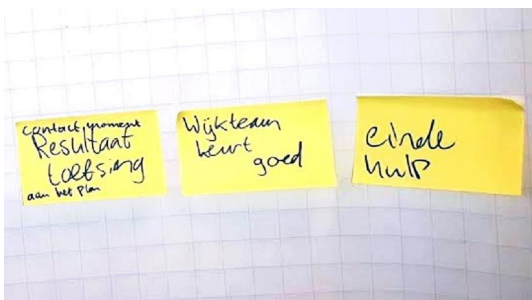 contactmoment
Resultaat
toetsing
aan het plan
Wijkteam
keurt
goed
einde
hulp